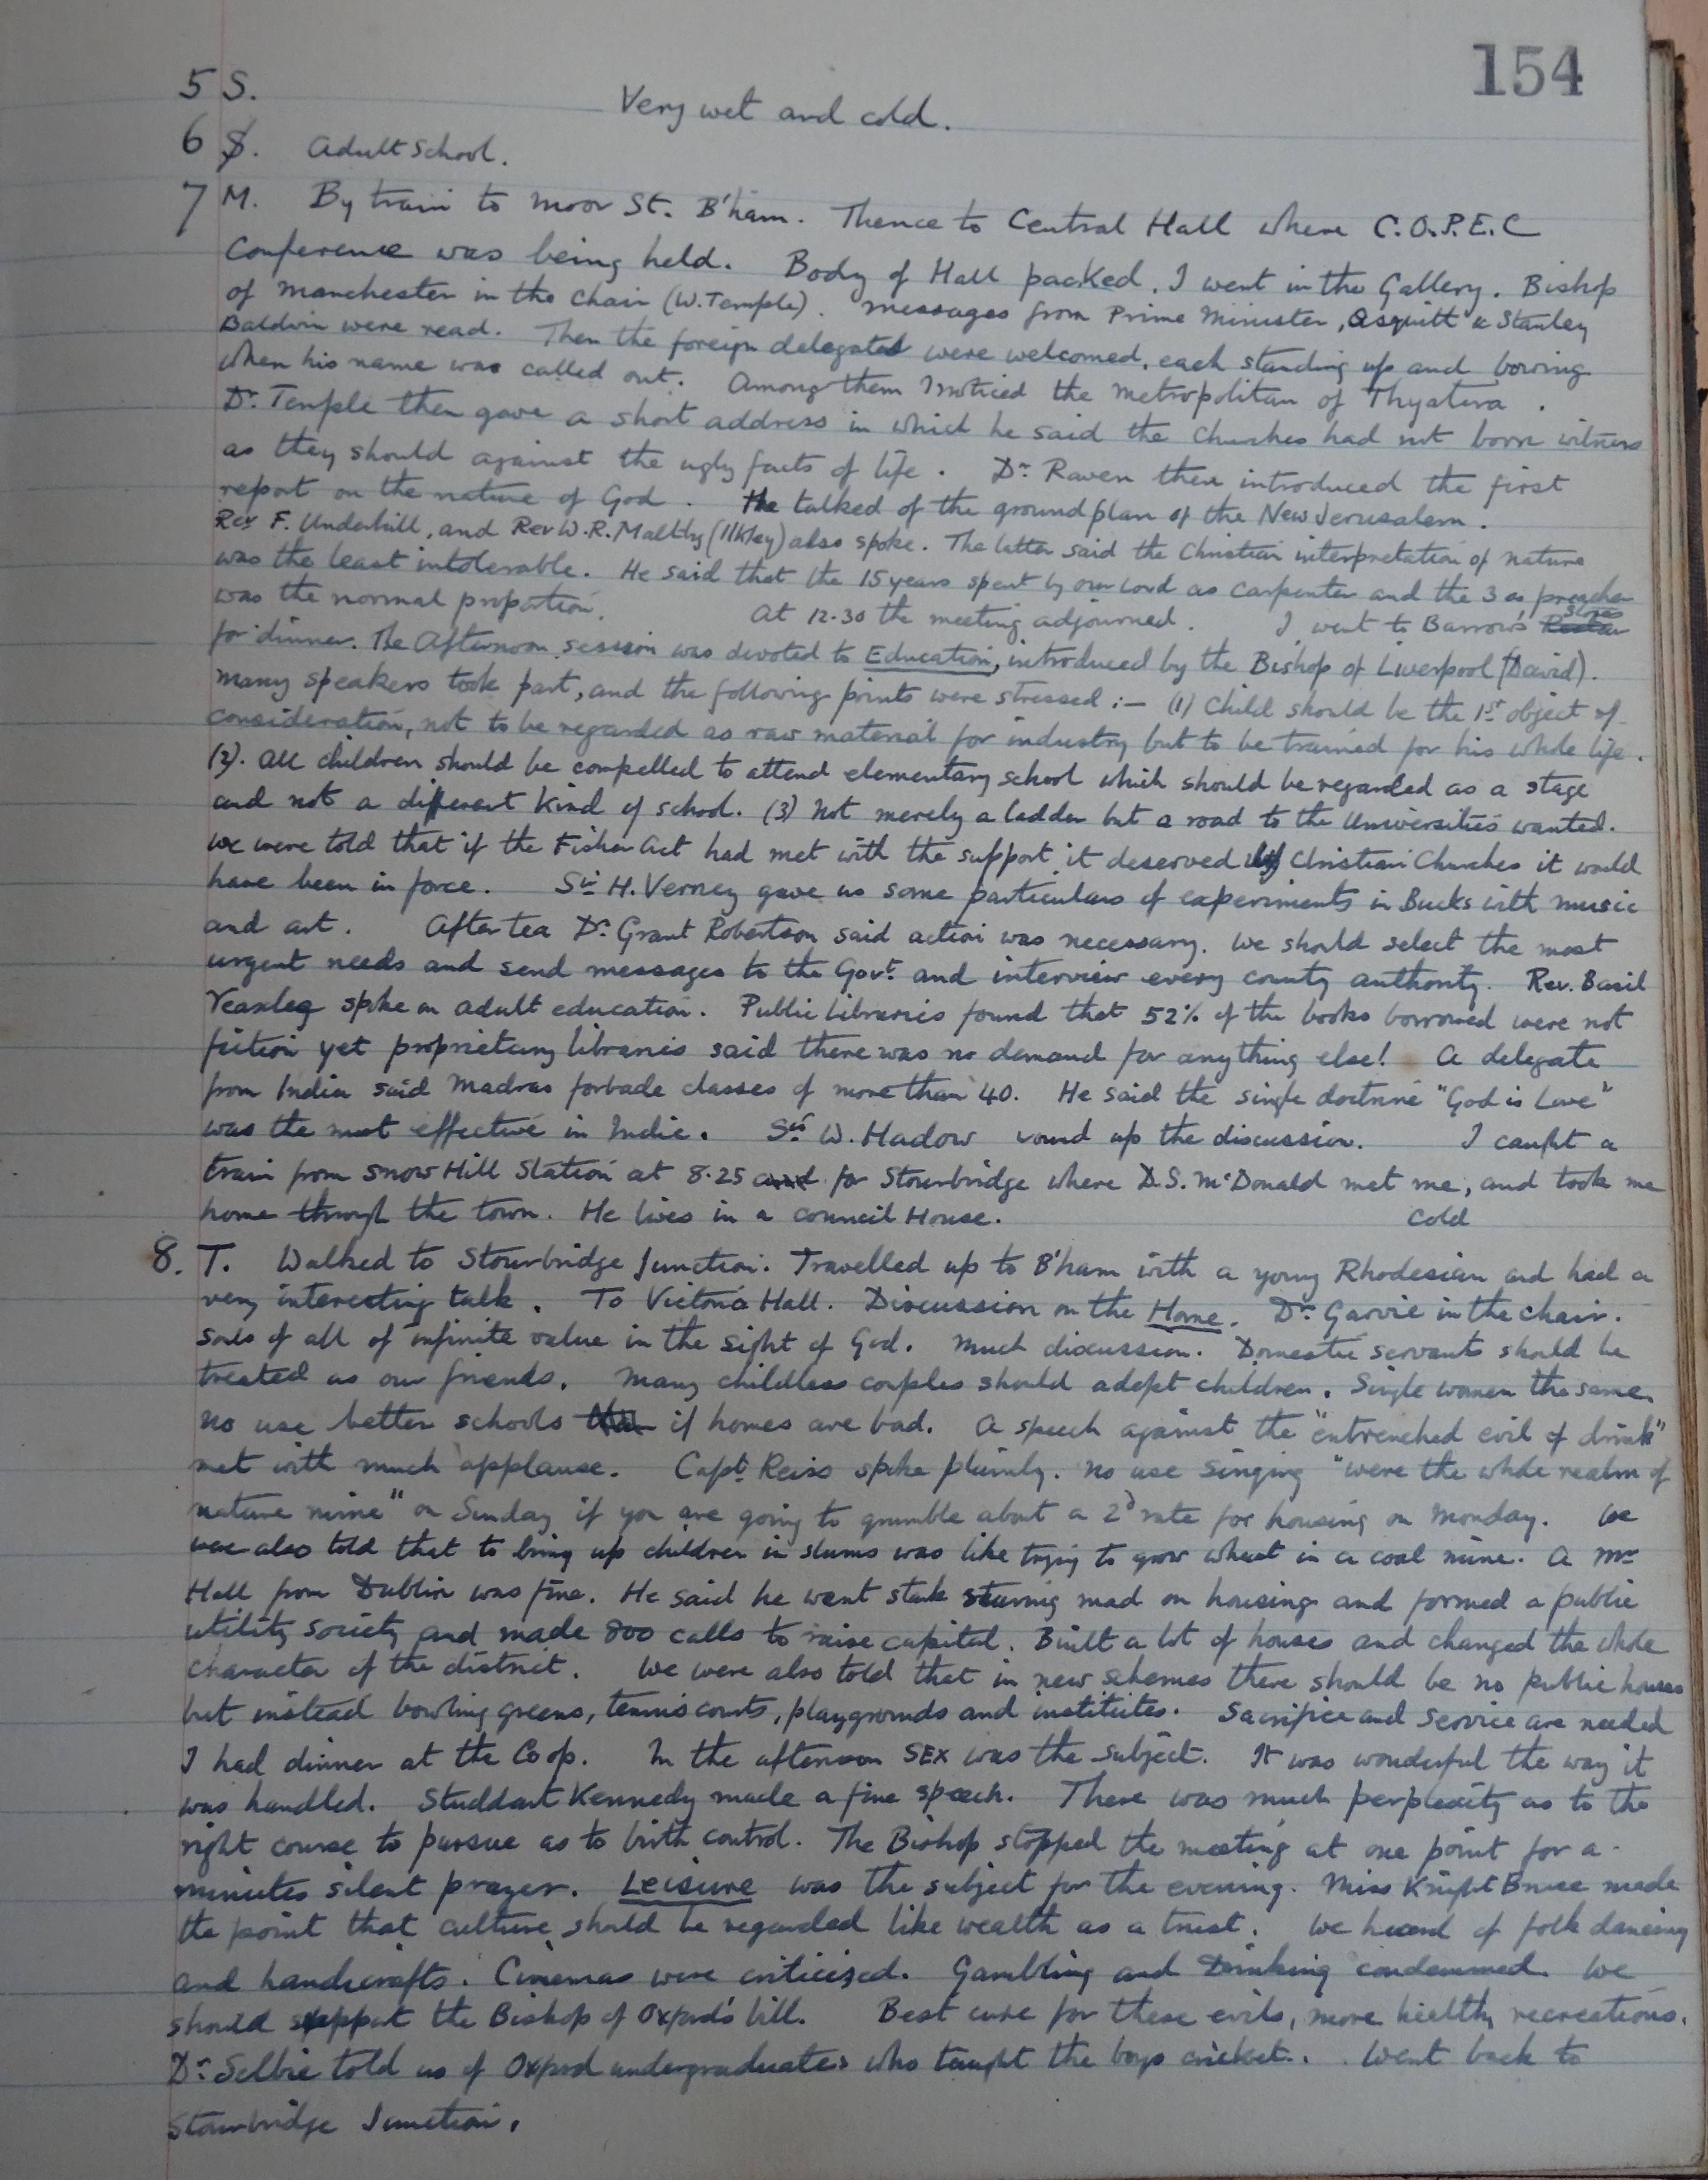 154
5 S. Very wet and cold.
6 S. Adult School.
7 M. By train to Moor St. B'ham. Thence to Central Hall where C.O.P.E.C
Conference was being held. Body of Hall packed, I went in the Gallery. Bishop
of Manchester in the chair (W. Temple). Messages from Prime Minister, Asquith & Stanley
Baldwin were read. Then the foreign delegates were welcomed, each standing up and bowing
when his name was called out. Among them I noticed the Metropolitan of Thyatira.
Dr. Temple then gave a short address in which he said the Churches had not born witness
as they should against the ugly facts of life. Dr. Raven then introduced the first
report on the nature of God. He talked of the groundplan of the New Jerusalem.
Rev F. Underhill, and Rev W.R. Maltby (Ilkley) also spoke. The latter said the Christian interpretation of nature
was the least intolerable. He said that the 15 years spent by our Lord as carpenter and the 3 as preacher
was the normal propotion. At 12.30 the meeting adjourned. I went to Barrow's Stores
for dinner. The Afternoon session was devoted to Education, introduced by the Bishop of Liverpool (David).
Many speakers took part, and the following points were stressed :— (1) Child should be the 1st object of
consideration, not to be regarded as raw material for industry but to be trained for his whole life.
(2). All children should be compelled to attend elementary school which should be regarded as a stage
and not a different kind of school. (3) Not merely a ladder but a road to the Universities wanted.
We were told that if the Fisher Act had met with the support it deserved by Christian Churches it would
have been in force. Sir H. Verney gave us some particulars of experiments in Bucks with music
and art. After tea Dr. Grant Robertson said action was necessary. We should select the most
urgent needs and send messages to the Govt. and interview every county authority. Rev. Basil
Yeaxlee spoke on adult education. Public Libraries found that 52% of the books borrowed were not
fiction yet proprietary libraries said there was no demand for anything else! A delegate
from India said Madras forbade classes of more than 40. He said the single doctrine "God is Love"
was the most effective in India. Sir W. Hadow wound up the discussion. I caught a
train from Snow Hill Station at 8.25 and for Stourbridge where D.S. McDonald met me, and took me
home through the town. He lives in a Council House. Cold
8. T. Walked to Stourbridge Junction. Travelled up to B'ham with a young Rhodesian and had a
very interesting talk. To Victoria Hall. Discussion on the Home. Dr. Garvie in the chair.
Souls of all of infinite value in the sight of God. Much discussion. Domestic servants should be
treated as our friends. Many childless couples should adopt children. Single women the same.
No use better schools if homes are bad. A speech against the "entrenched evil of drink"
met with much applause. Capt. Reiss spoke plainly. No use singing "were the whole realm of
nature mine" on Sunday if you are going to grumble about a 2d rate for housing on Monday. We
were also told that to bring up children in slums was like trying to grow wheat in a coal mine. A Mr
Hall from Dublin was fine. He said he went stark staring mad on housing and formed a public
utility society and made 800 calls to raise capital. Built a lot of houses and changed the whole
character of the district. We were also told that in new schemes there should be no public houses
but instead bowling greens, tennis courts, playgrounds and institutes. Sacrifice and service are needed
I had dinner at the Co op. In the afternoon SEX was the subject. It was wonderful the way it
was handled. Studdart Kennedy made a fine speech. There was much perplexity as to the
right course to pursue as to birth control. The Bishop stopped the meeting at one point for a
minutes silent prayer. Leisure was the subject for the evening. Miss Knight Bruce made
the point that culture should be regarded like wealth as a trust. We heard of folk dancing
and handicrafts. Cinemas were criticised. Gambling and Drinking condemned. We
should support the Bishop of Oxford's bill. Best cure for these evils, more healthy recreations.
Dr. Selbie told us of Oxford undergraduates who taught the boys cricket. Went back to
Stourbridge Junction.